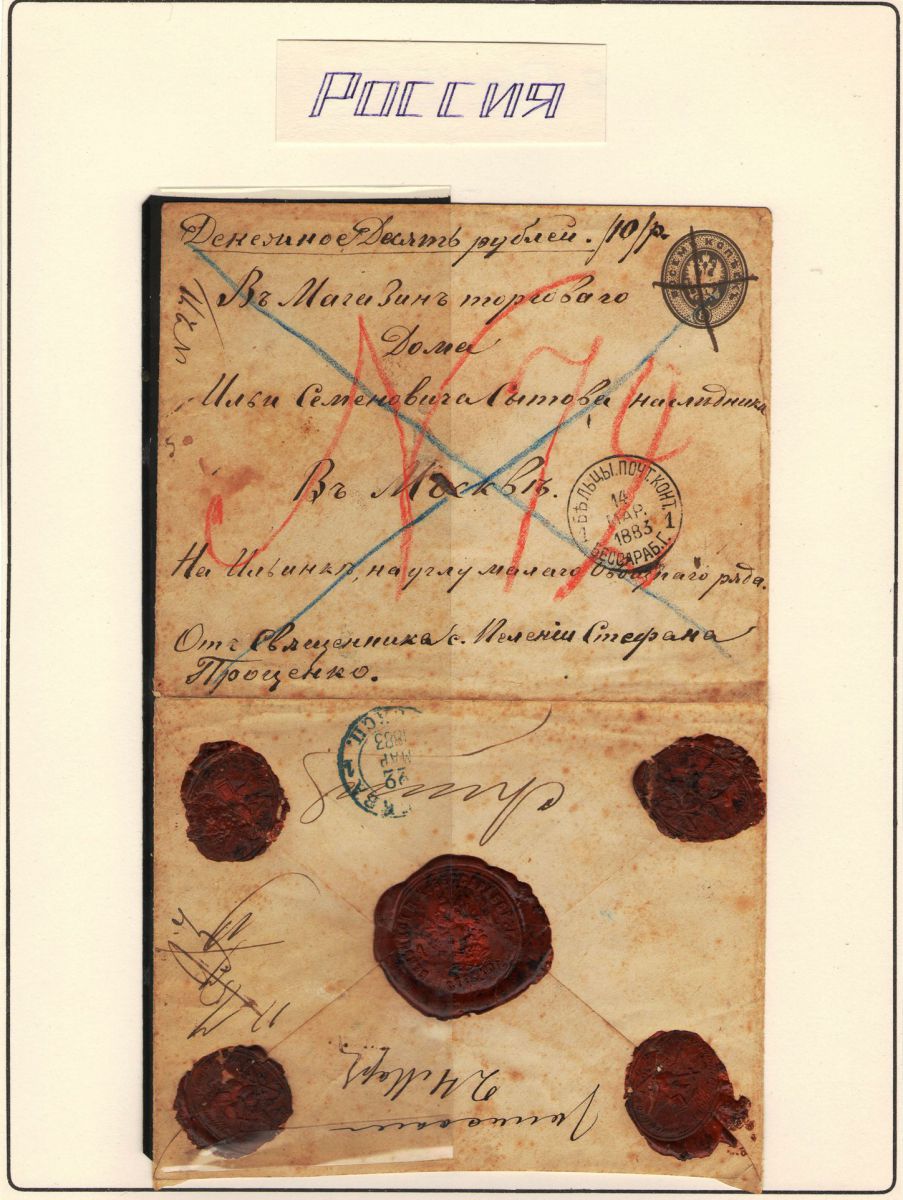 Россия
Денежное Десять рублей. /10/р.
Въ Магазинъ торговаго
Дома
Ильи Семеновича Сытова наслѣдника
Въ Москвѣ.
На Ильинкѣ, на углу малаго Овощнаго ряда.
Отъ Священника с. Пеленіи Стефана
Проценко.
N 174
ВОСЕМЬ КОПѢЕКЪ
8
БѢЛЬЦЫ.ПОЧТ.КОНТ.
14
МАР.
1883
1 1
БЕССАРАБ.Г.
22
МАР
1883
24 Мар